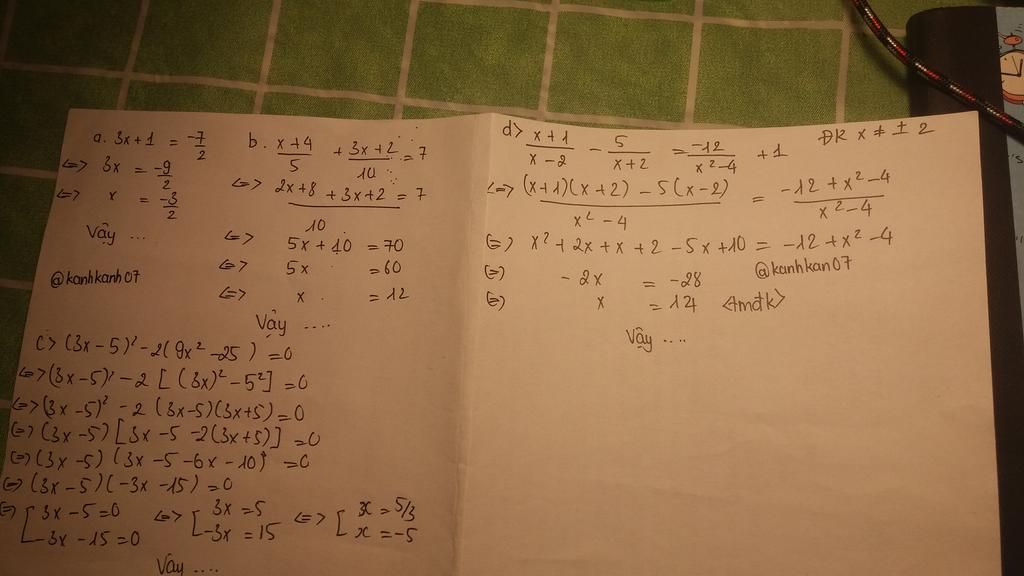 a. 3x+1 = -7/2
<=> 3x = -9/2
<=> x = -3/2
Vậy ...
@kanhkanh07
b. (x+4)/5 + (3x+2)/10 = 7
<=> (2x+8+3x+2)/10 = 7
<=> 5x+10 = 70
<=> 5x = 60
<=> x = 12
Vậy ....
c> (3x-5)² - 2(9x²-25) = 0
<=> (3x-5)² - 2[(3x)²-5²] = 0
<=> (3x-5)² - 2(3x-5)(3x+5) = 0
<=> (3x-5)[3x-5-2(3x+5)] = 0
<=> (3x-5)(3x-5-6x-10) = 0
<=> (3x-5)(-3x-15) = 0
<=> [3x-5=0 <=> [3x=5 <=> [x=5/3
-3x-15=0 -3x=15 x=-5
Vậy ....
d> (x+1)/(x-2) - 5/(x+2) = -12/(x²-4) + 1 ĐK x ≠ ± 2
<=> ((x+1)(x+2)-5(x-2))/(x²-4) = (-12+x²-4)/(x²-4)
<=> x²+2x+x+2-5x+10 = -12+x²-4
<=> -2x = -28
@kanhkan07
<=> x = 14 <tmđk>
Vậy ....